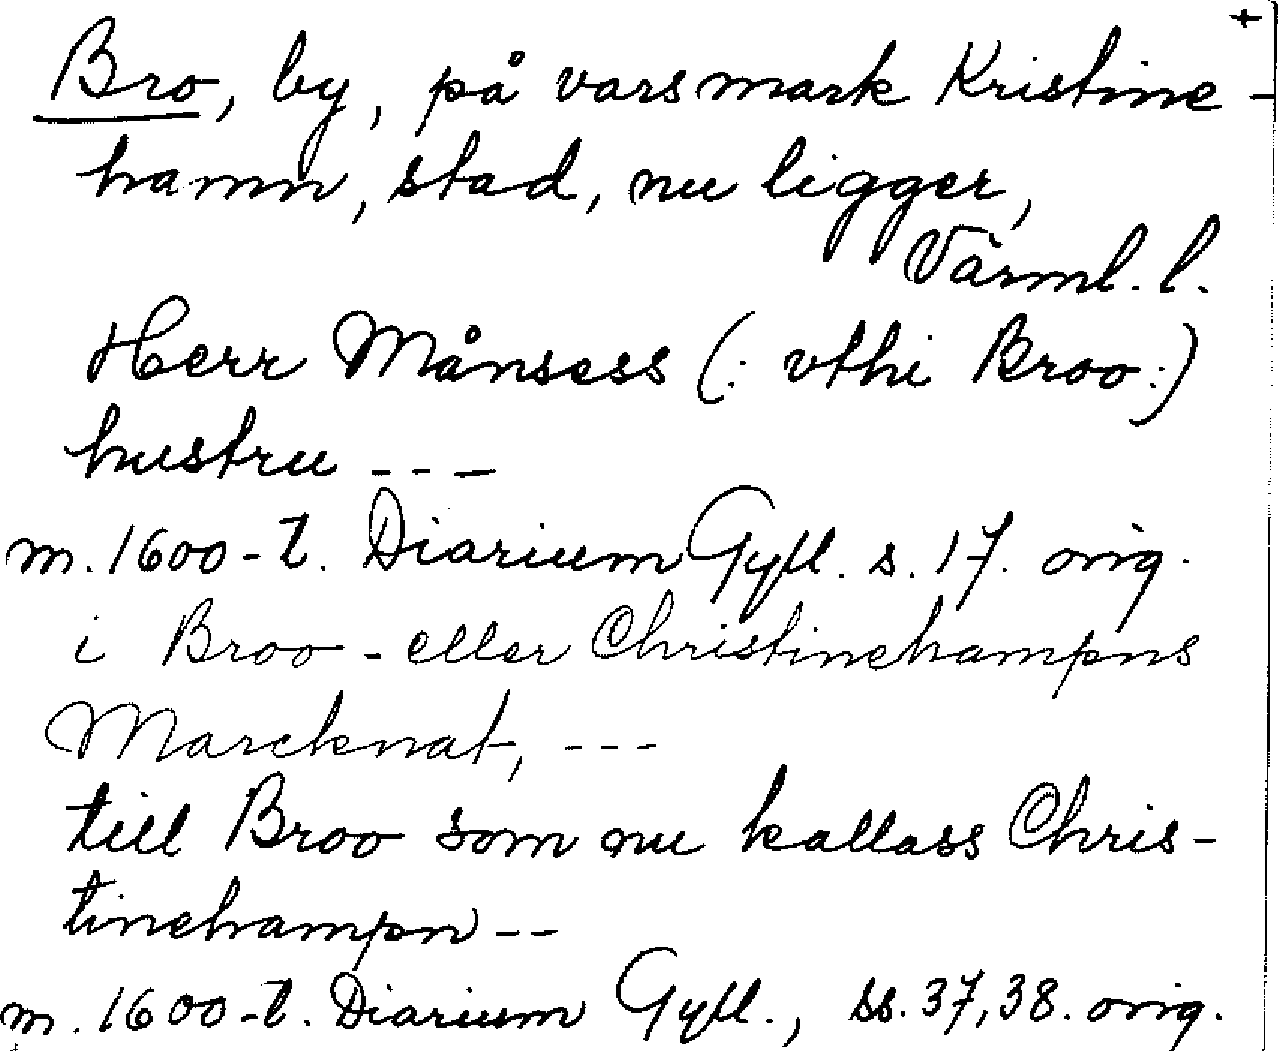 +
Bro, by, på vars mark Kristine-
hamn, stad, nu ligger,
Värml. l.
Herr Månsess (: vthi Broo:)
hustru ---
m. 1600-t. Diarium Gyll. s. 17. orig.
i Broo - eller Christinehampns
Marcknat, ---
till Broo som nu kallass Chris-
tinehampn --
m. 1600-t. Diarium Gyll., ss. 37, 38. orig.